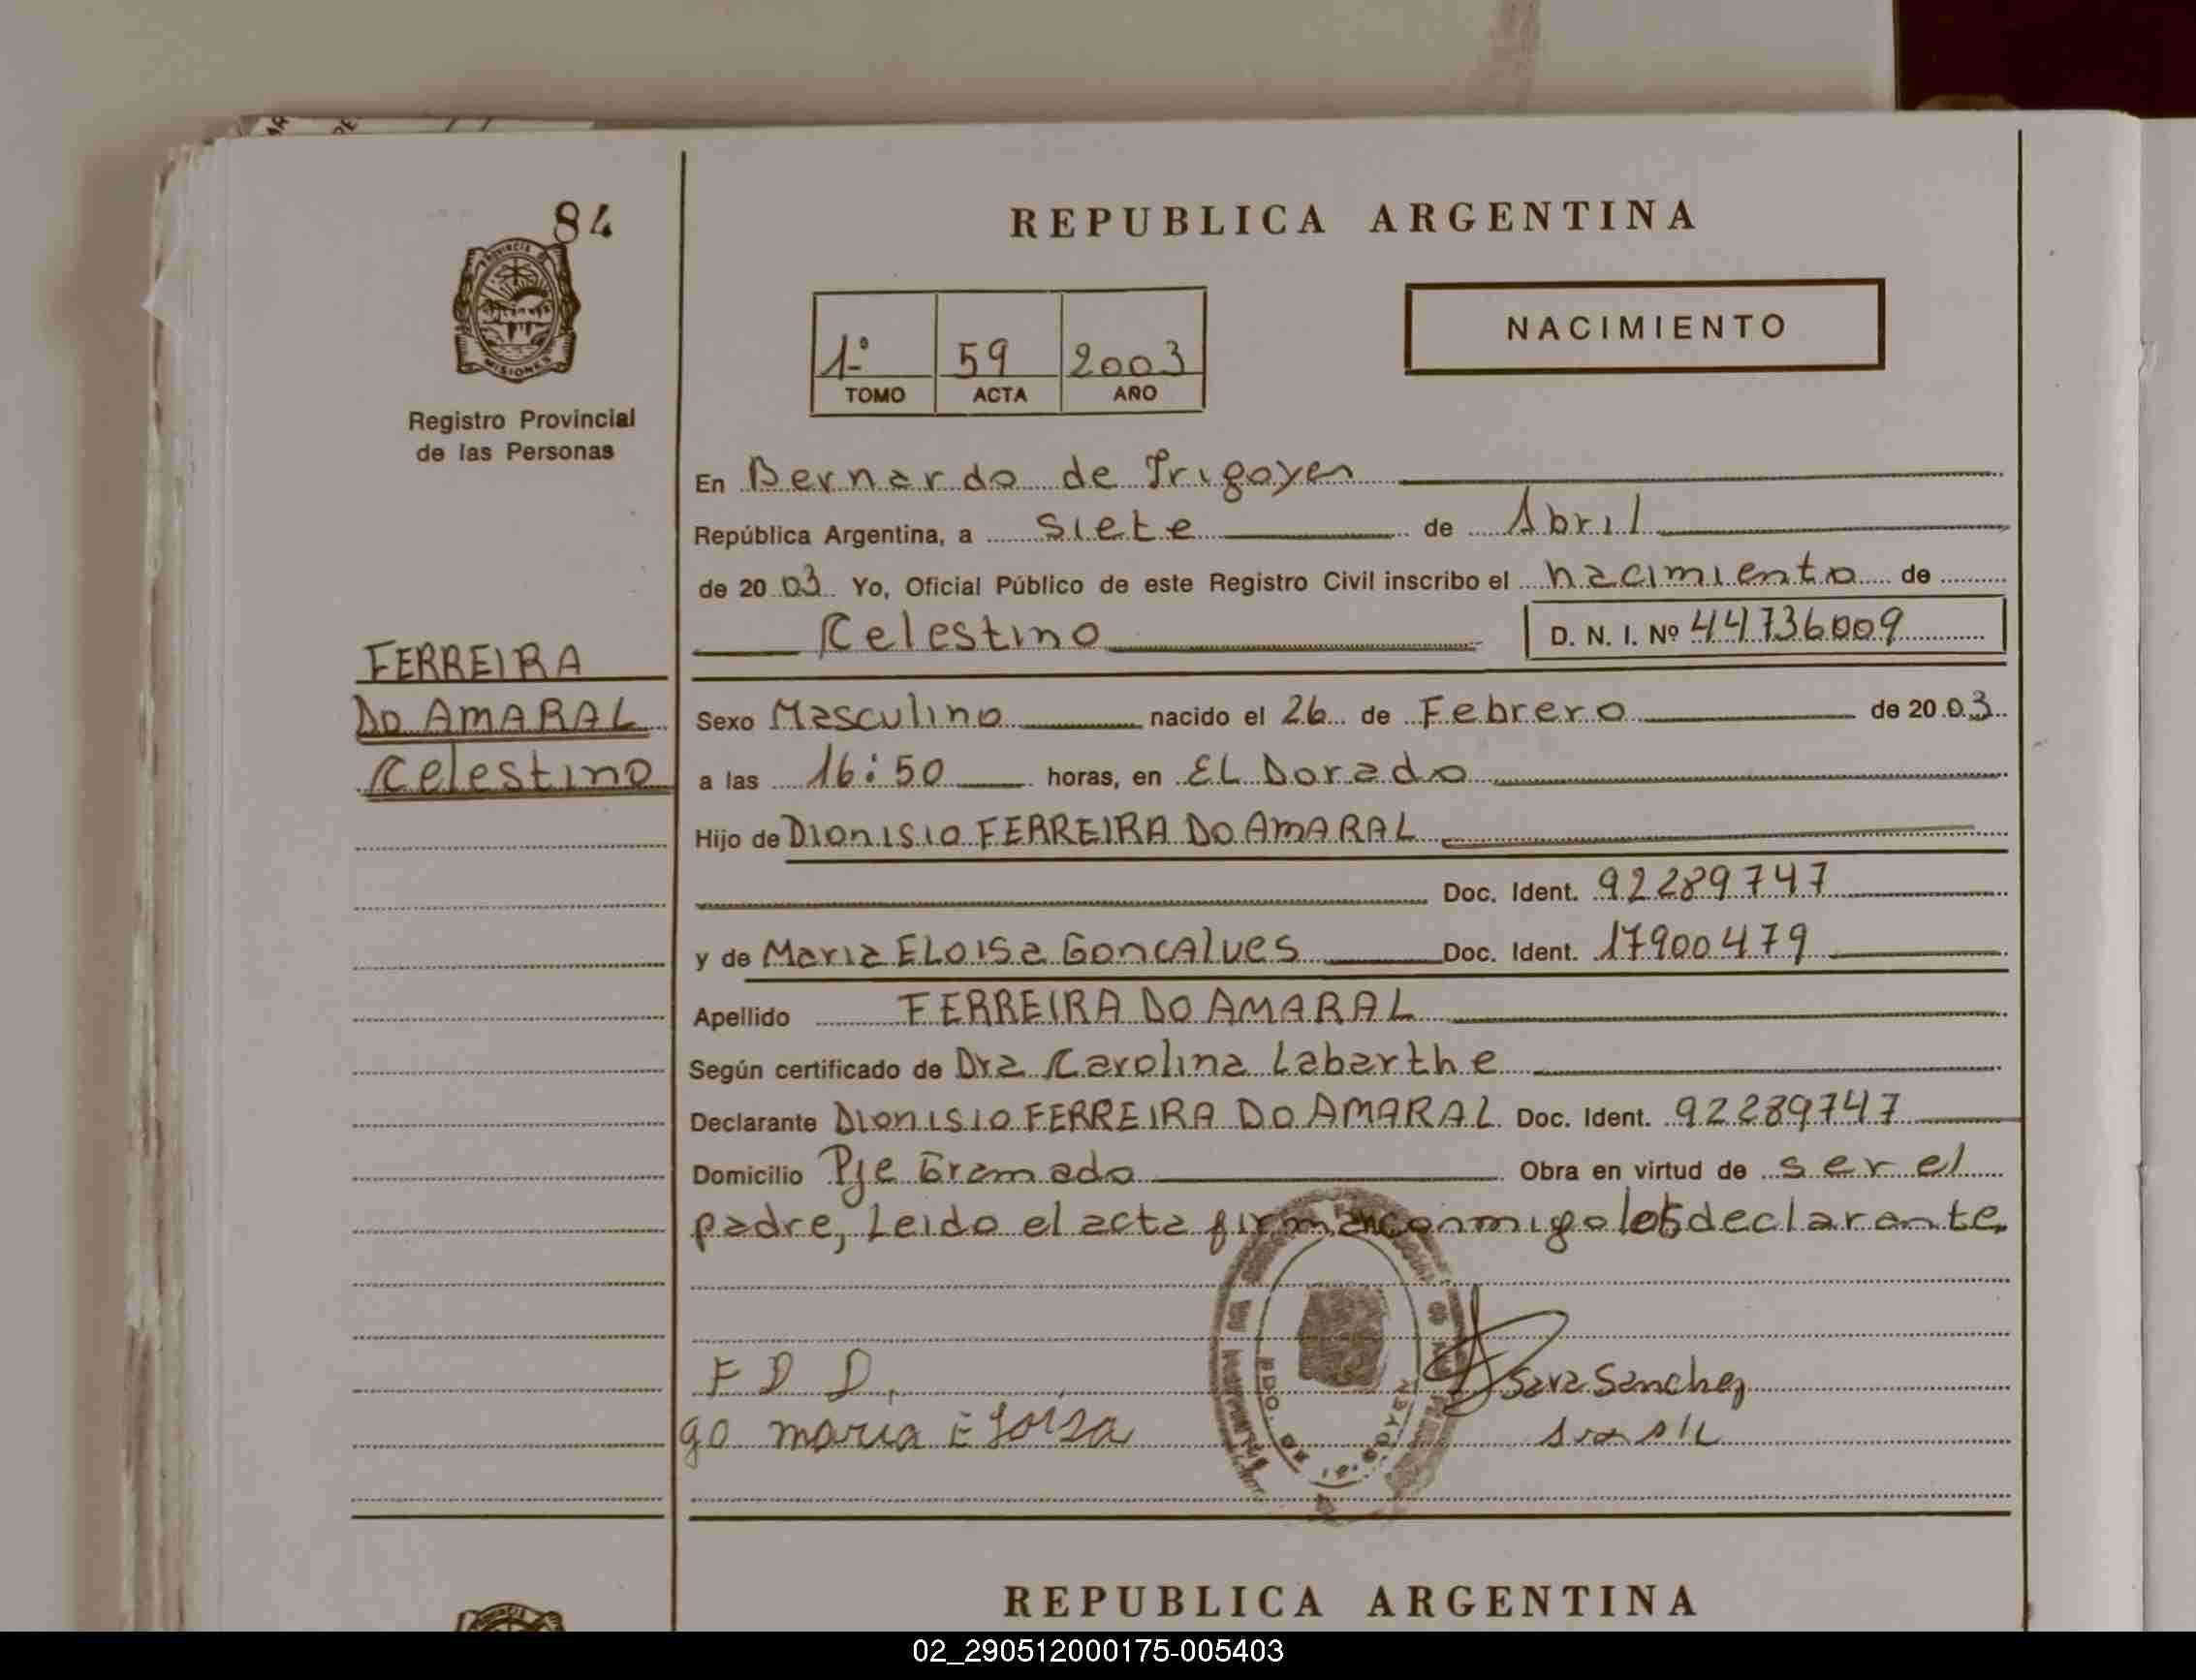 84
PROVINCIA DE
MISIONES
Registro Provincial
de las Personas
FERREIRA
DO AMARAL
Celestino
REPUBLICA ARGENTINA
1º 59 2003
TOMO ACTA AÑO
NACIMIENTO
En Bernardo de Irigoyen
República Argentina, a siete de Abril
de 2003 Yo, Oficial Público de este Registro Civil inscribo el nacimiento de
Celestino D. N. I. Nº 44736009
Sexo Masculino nacido el 26 de Febrero de 2003
a las 16:50 horas, en EL Dorado
Hijo de Dionisio FERREIRA DO AMARAL
Doc. Ident. 92289747
y de Maria ELOISa Goncalves Doc. Ident. 17900479
Apellido FERREIRA DO AMARAL
Según certificado de Dra Carolina Labarthe
Declarante DIONISIO FERREIRA DO AMARAL Doc. Ident. 92289747
Domicilio Pje Gramado Obra en virtud de ser el
padre, Leido el acta firman conmigo los declarante,
F D D
go maria Eloisa
Sara Sanchez
BDO. DE IRIGOYEN
REPUBLICA ARGENTINA
02_290512000175-005403